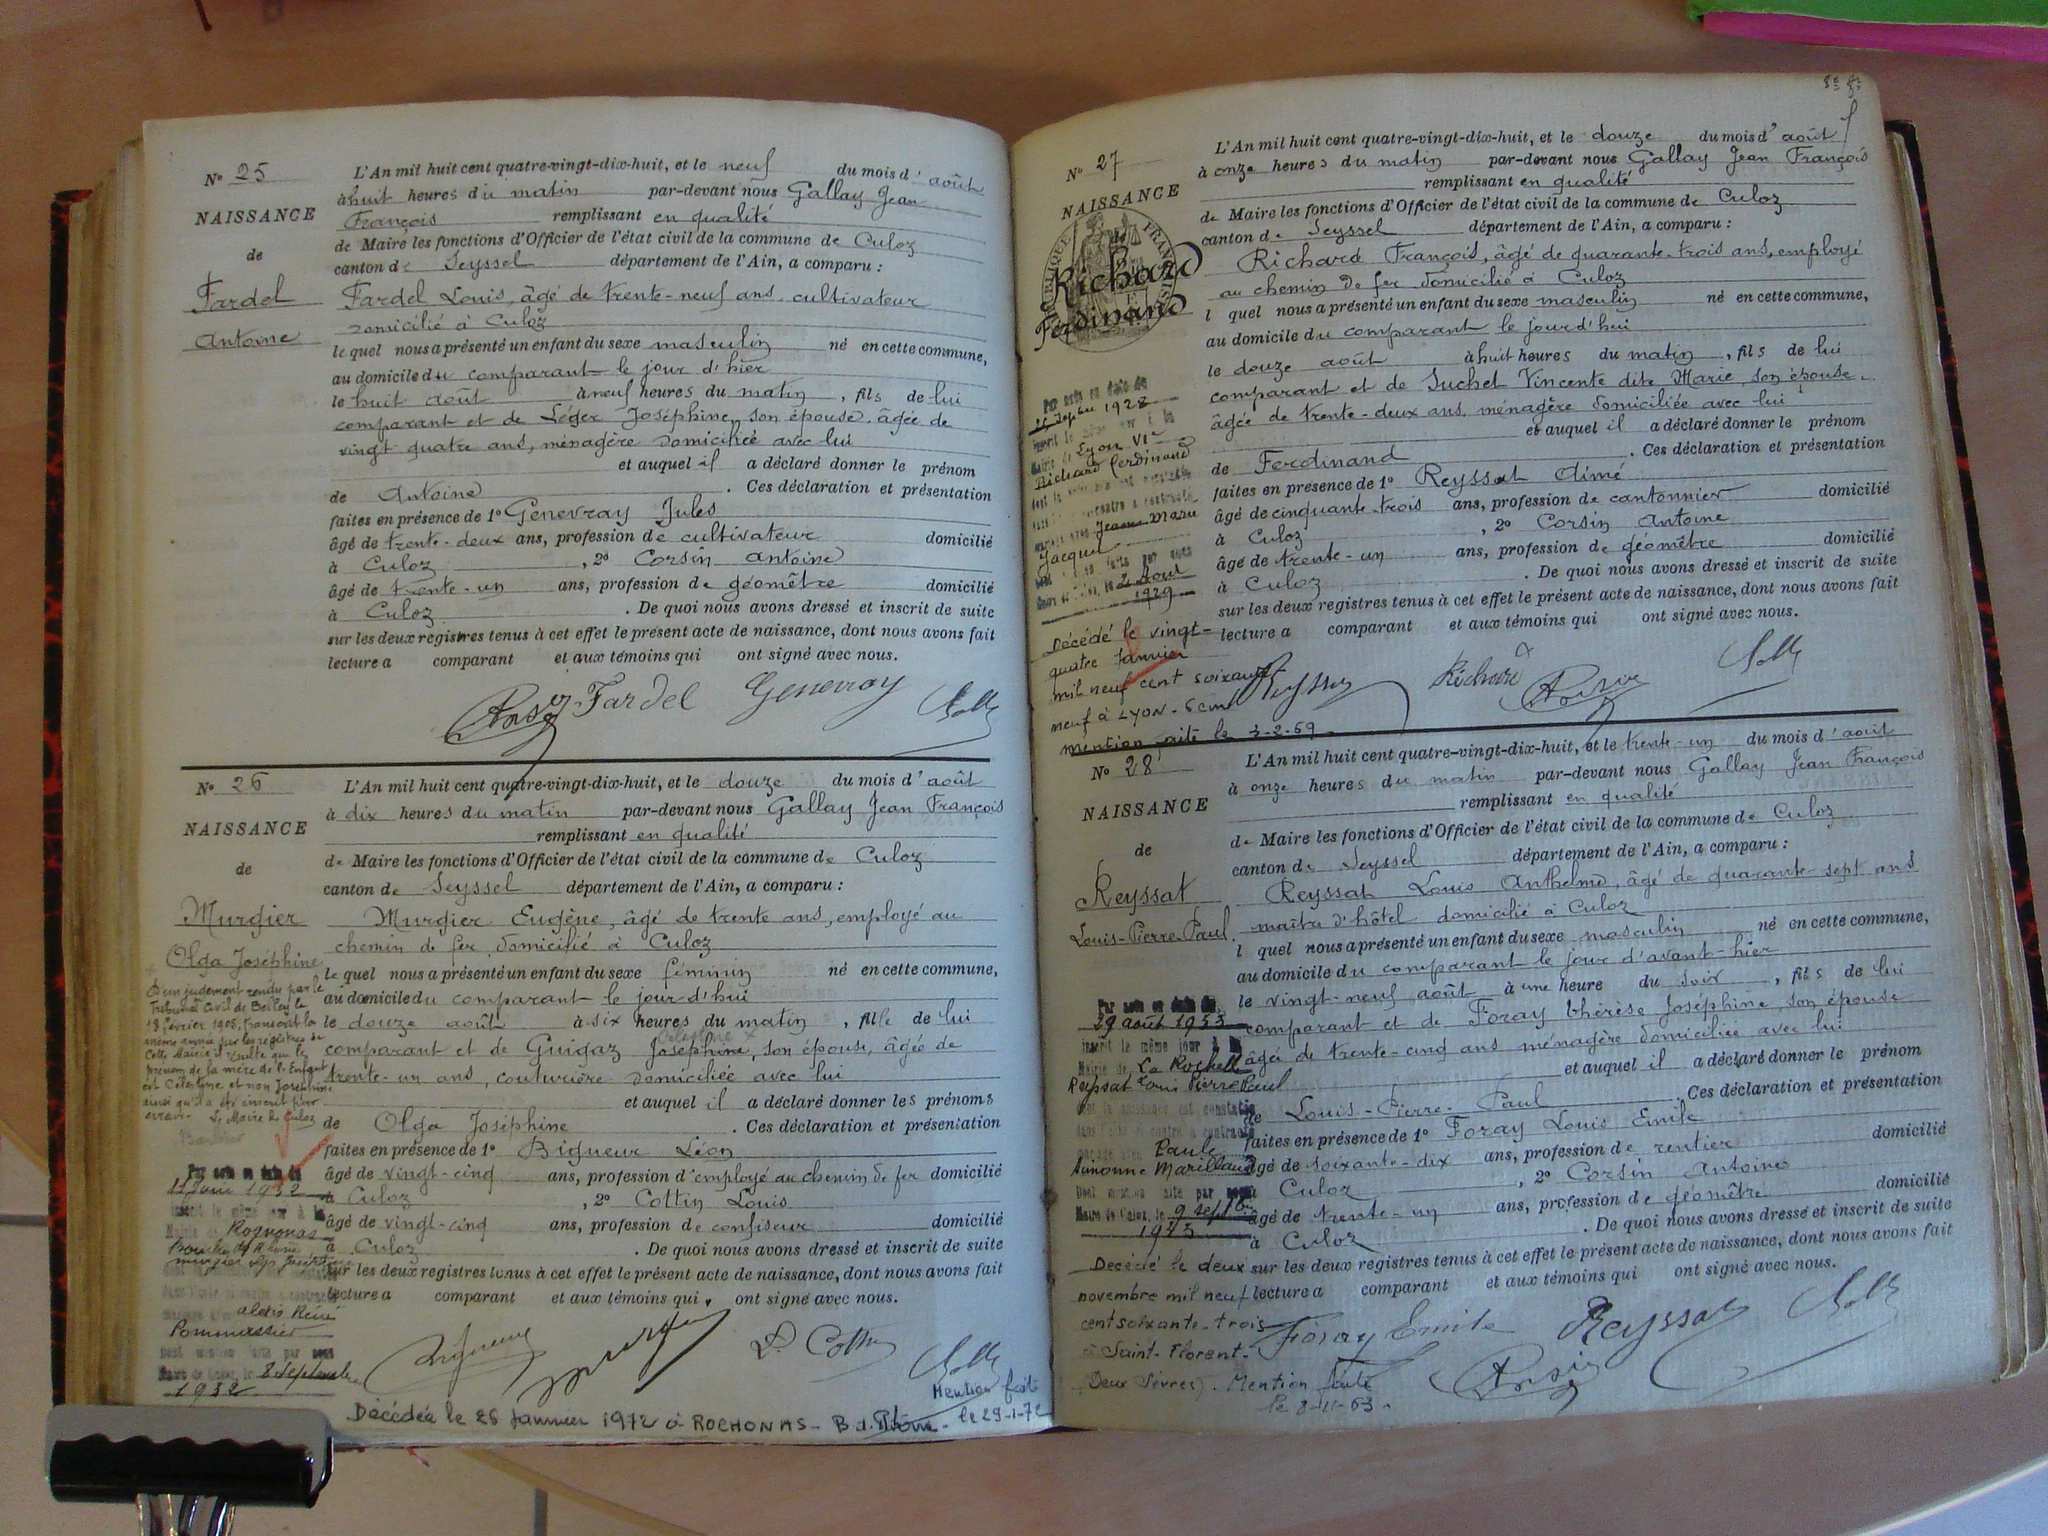 N° 25
NAISSANCE
de
Fardel
Antoine
L'An mil huit cent quatre-vingt-dix-huit, et le neuf du mois d'août
à huit heures du matin par-devant nous Gallay Jean
François remplissant en qualité
de Maire les fonctions d'Officier de l'état civil de la commune de Culoz
canton de Seyssel département de l'Ain, a comparu :
Fardel Louis, âgé de trente-neuf ans, cultivateur
domicilié à Culoz
lequel nous a présenté un enfant du sexe masculin né en cette commune,
au domicile du comparant le jour d'hier
le huit août à neuf heures du matin, fils de lui
comparant et de Léger Joséphine, son épouse, âgée de
vingt quatre ans, ménagère domiciliée avec lui
et auquel il a déclaré donner le prénom
de Antoine. Ces déclaration et présentation
faites en présence de 1° Genevray Jules
âgé de trente-deux ans, profession de cultivateur domicilié
à Culoz, 2° Corsin Antoine
âgé de trente-un ans, profession de géomètre domicilié
à Culoz. De quoi nous avons dressé et inscrit de suite
sur les deux registres tenus à cet effet le présent acte de naissance, dont nous avons fait
lecture a comparant et aux témoins qui ont signé avec nous.
Fardel Genevray
N° 26
NAISSANCE
de
Murgier
Olga Joséphine
D'un jugement rendu par le
Tribunal Civil de Belley le
18 février 1905, transcrit la
même année sur les registres de
cette Mairie il résulte que le
prénom de la mère de l'Enfant
est Célestine et non Joséphine
ainsi qu'il a été inscrit par
erreur. Le Maire de Culoz
Par acte en date du
1932
Rognonas
Bouches du Rhône
alexis Réné
Pommassier
8 Septembre
1932
L'An mil huit cent quatre-vingt-dix-huit, et le douze du mois d'août
à dix heures du matin par-devant nous Gallay Jean François
remplissant en qualité
de Maire les fonctions d'Officier de l'état civil de la commune de Culoz
canton de Seyssel département de l'Ain, a comparu :
Murgier Eugène, âgé de trente ans, employé au
chemin de fer, domicilié à Culoz
lequel nous a présenté un enfant du sexe féminin né en cette commune,
au domicile du comparant le jour d'hui
le douze août à six heures du matin, fille de lui
Célestine
comparant et de Guigaz Joséphine, son épouse, âgée de
trente-un ans, couturière domiciliée avec lui
et auquel il a déclaré donner les prénoms
de Olga Joséphine. Ces déclaration et présentation
faites en présence de 1° Bigueur Léon
âgé de vingt-cinq ans, profession d'employé au chemin de fer domicilié
à Culoz, 2° Cottin Louis
âgé de vingt-cinq ans, profession de confiseur domicilié
à Culoz. De quoi nous avons dressé et inscrit de suite
sur les deux registres tenus à cet effet le présent acte de naissance, dont nous avons fait
lecture a comparant et aux témoins qui ont signé avec nous.
L. Cottin
Mention faite
Décédée le 26 Janvier 1972 à ROGNONAS - B. d. Rhône - le 29-1-72
N° 27
NAISSANCE
de
Richard
Ferdinand
Par acte en date du
1928
Lyon VIe
Richard Ferdinand
Jeanne Marie
Jacquet
2 Aout
1929
Décédé le vingt-
quatre Janvier
mil neuf cent soixante
neuf à LYON - 6em
mention faite le 3-2-69
L'An mil huit cent quatre-vingt-dix-huit, et le douze du mois d'août
à onze heures du matin par-devant nous Gallay Jean François
remplissant en qualité
de Maire les fonctions d'Officier de l'état civil de la commune de Culoz
canton de Seyssel département de l'Ain, a comparu :
Richard François, âgé de quarante-trois ans, employé
au chemin de fer domicilié à Culoz
l quel nous a présenté un enfant du sexe masculin né en cette commune,
au domicile du comparant le jour d'hui
le douze août à huit heures du matin, fils de lui
comparant et de Suchet Vincente dite Marie, son épouse,
âgée de trente-deux ans, ménagère domiciliée avec lui
et auquel il a déclaré donner le prénom
de Ferdinand. Ces déclaration et présentation
faites en présence de 1° Reyssat Aimé
âgé de cinquante-trois ans, profession de cantonnier domicilié
à Culoz, 2° Corsin Antoine
âgé de trente-un ans, profession de géomètre domicilié
à Culoz. De quoi nous avons dressé et inscrit de suite
sur les deux registres tenus à cet effet le présent acte de naissance, dont nous avons fait
lecture a comparant et aux témoins qui ont signé avec nous.
Reyssat Richard
N° 28
NAISSANCE
de
Reyssat
Louis-Pierre-Paul
Par acte en date du
29 août 1953
inscrit le même jour à la
Mairie de La Rochelle
Reyssat Louis Pierre Paul
Paule
9 sept
Décédé le deux
novembre mil neuf
cent soixante-trois
à Saint-Florent
(Deux Sèvres). Mention faite
le 8-11-63.
L'An mil huit cent quatre-vingt-dix-huit, et le trente-un du mois d'août
à onze heures du matin par-devant nous Gallay Jean François
remplissant en qualité
de Maire les fonctions d'Officier de l'état civil de la commune de Culoz
canton de Seyssel département de l'Ain, a comparu :
Reyssat Louis Anthelme, âgé de quarante-sept ans
maître d'hôtel domicilié à Culoz
l quel nous a présenté un enfant du sexe masculin né en cette commune,
au domicile du comparant le jour d'avant-hier
le vingt-neuf août à une heure du soir, fils de lui
comparant et de Foray Thérèse Joséphine, son épouse
âgée de trente-cinq ans ménagère domiciliée avec lui
et auquel il a déclaré donner le prénom
de Louis-Pierre-Paul. Ces déclaration et présentation
faites en présence de 1° Foray Louis Emile
âgé de soixante-dix ans, profession de rentier domicilié
à Culoz, 2° Corsin Antoine
âgé de trente-un ans, profession de géomètre domicilié
à Culoz. De quoi nous avons dressé et inscrit de suite
sur les deux registres tenus à cet effet le présent acte de naissance, dont nous avons fait
lecture a comparant et aux témoins qui ont signé avec nous.
Foray Emile Reyssat